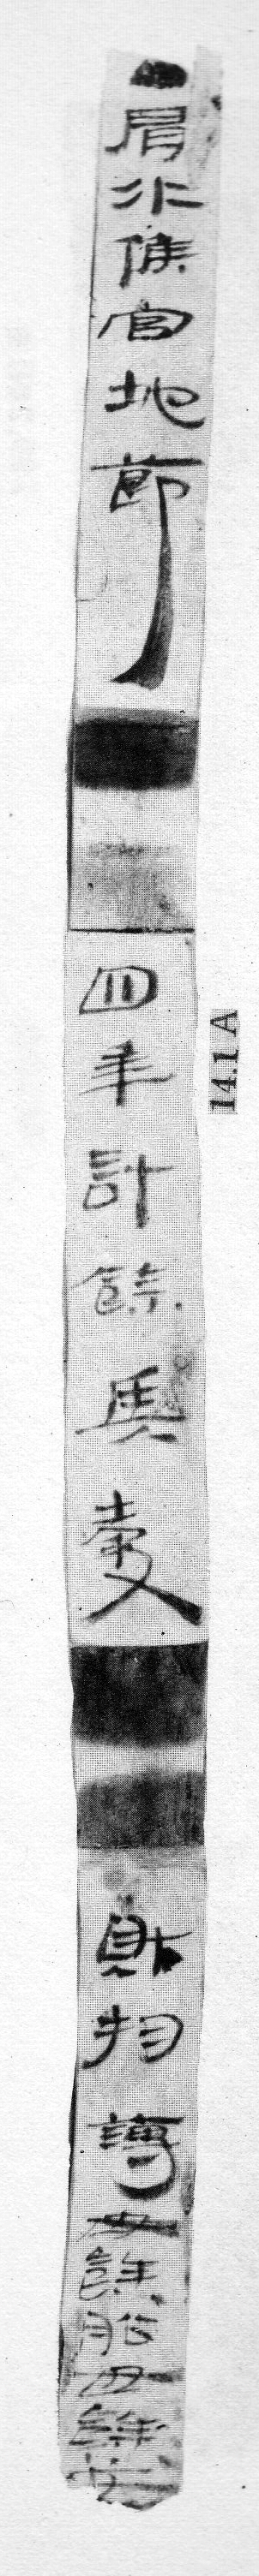 ●肩水候官地節四年計餘兵穀財物簿毋餘船毋餘茭
14.1 A